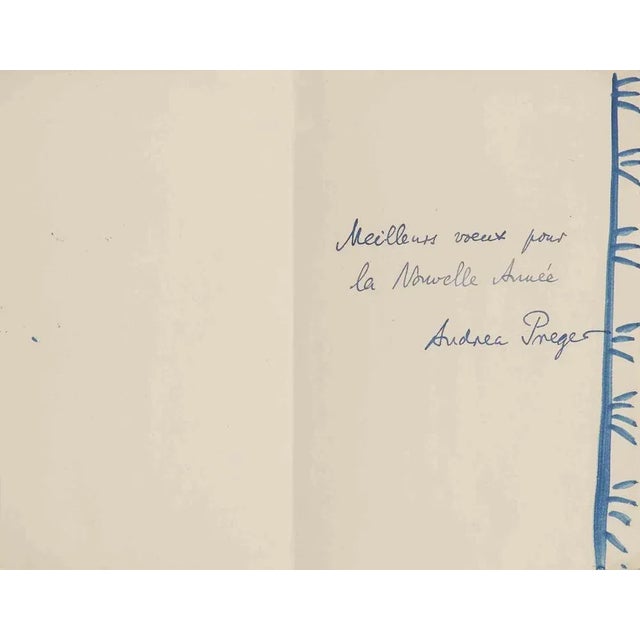 Meilleurs voeux pour
la Nouvelle Année
Andrea Preger